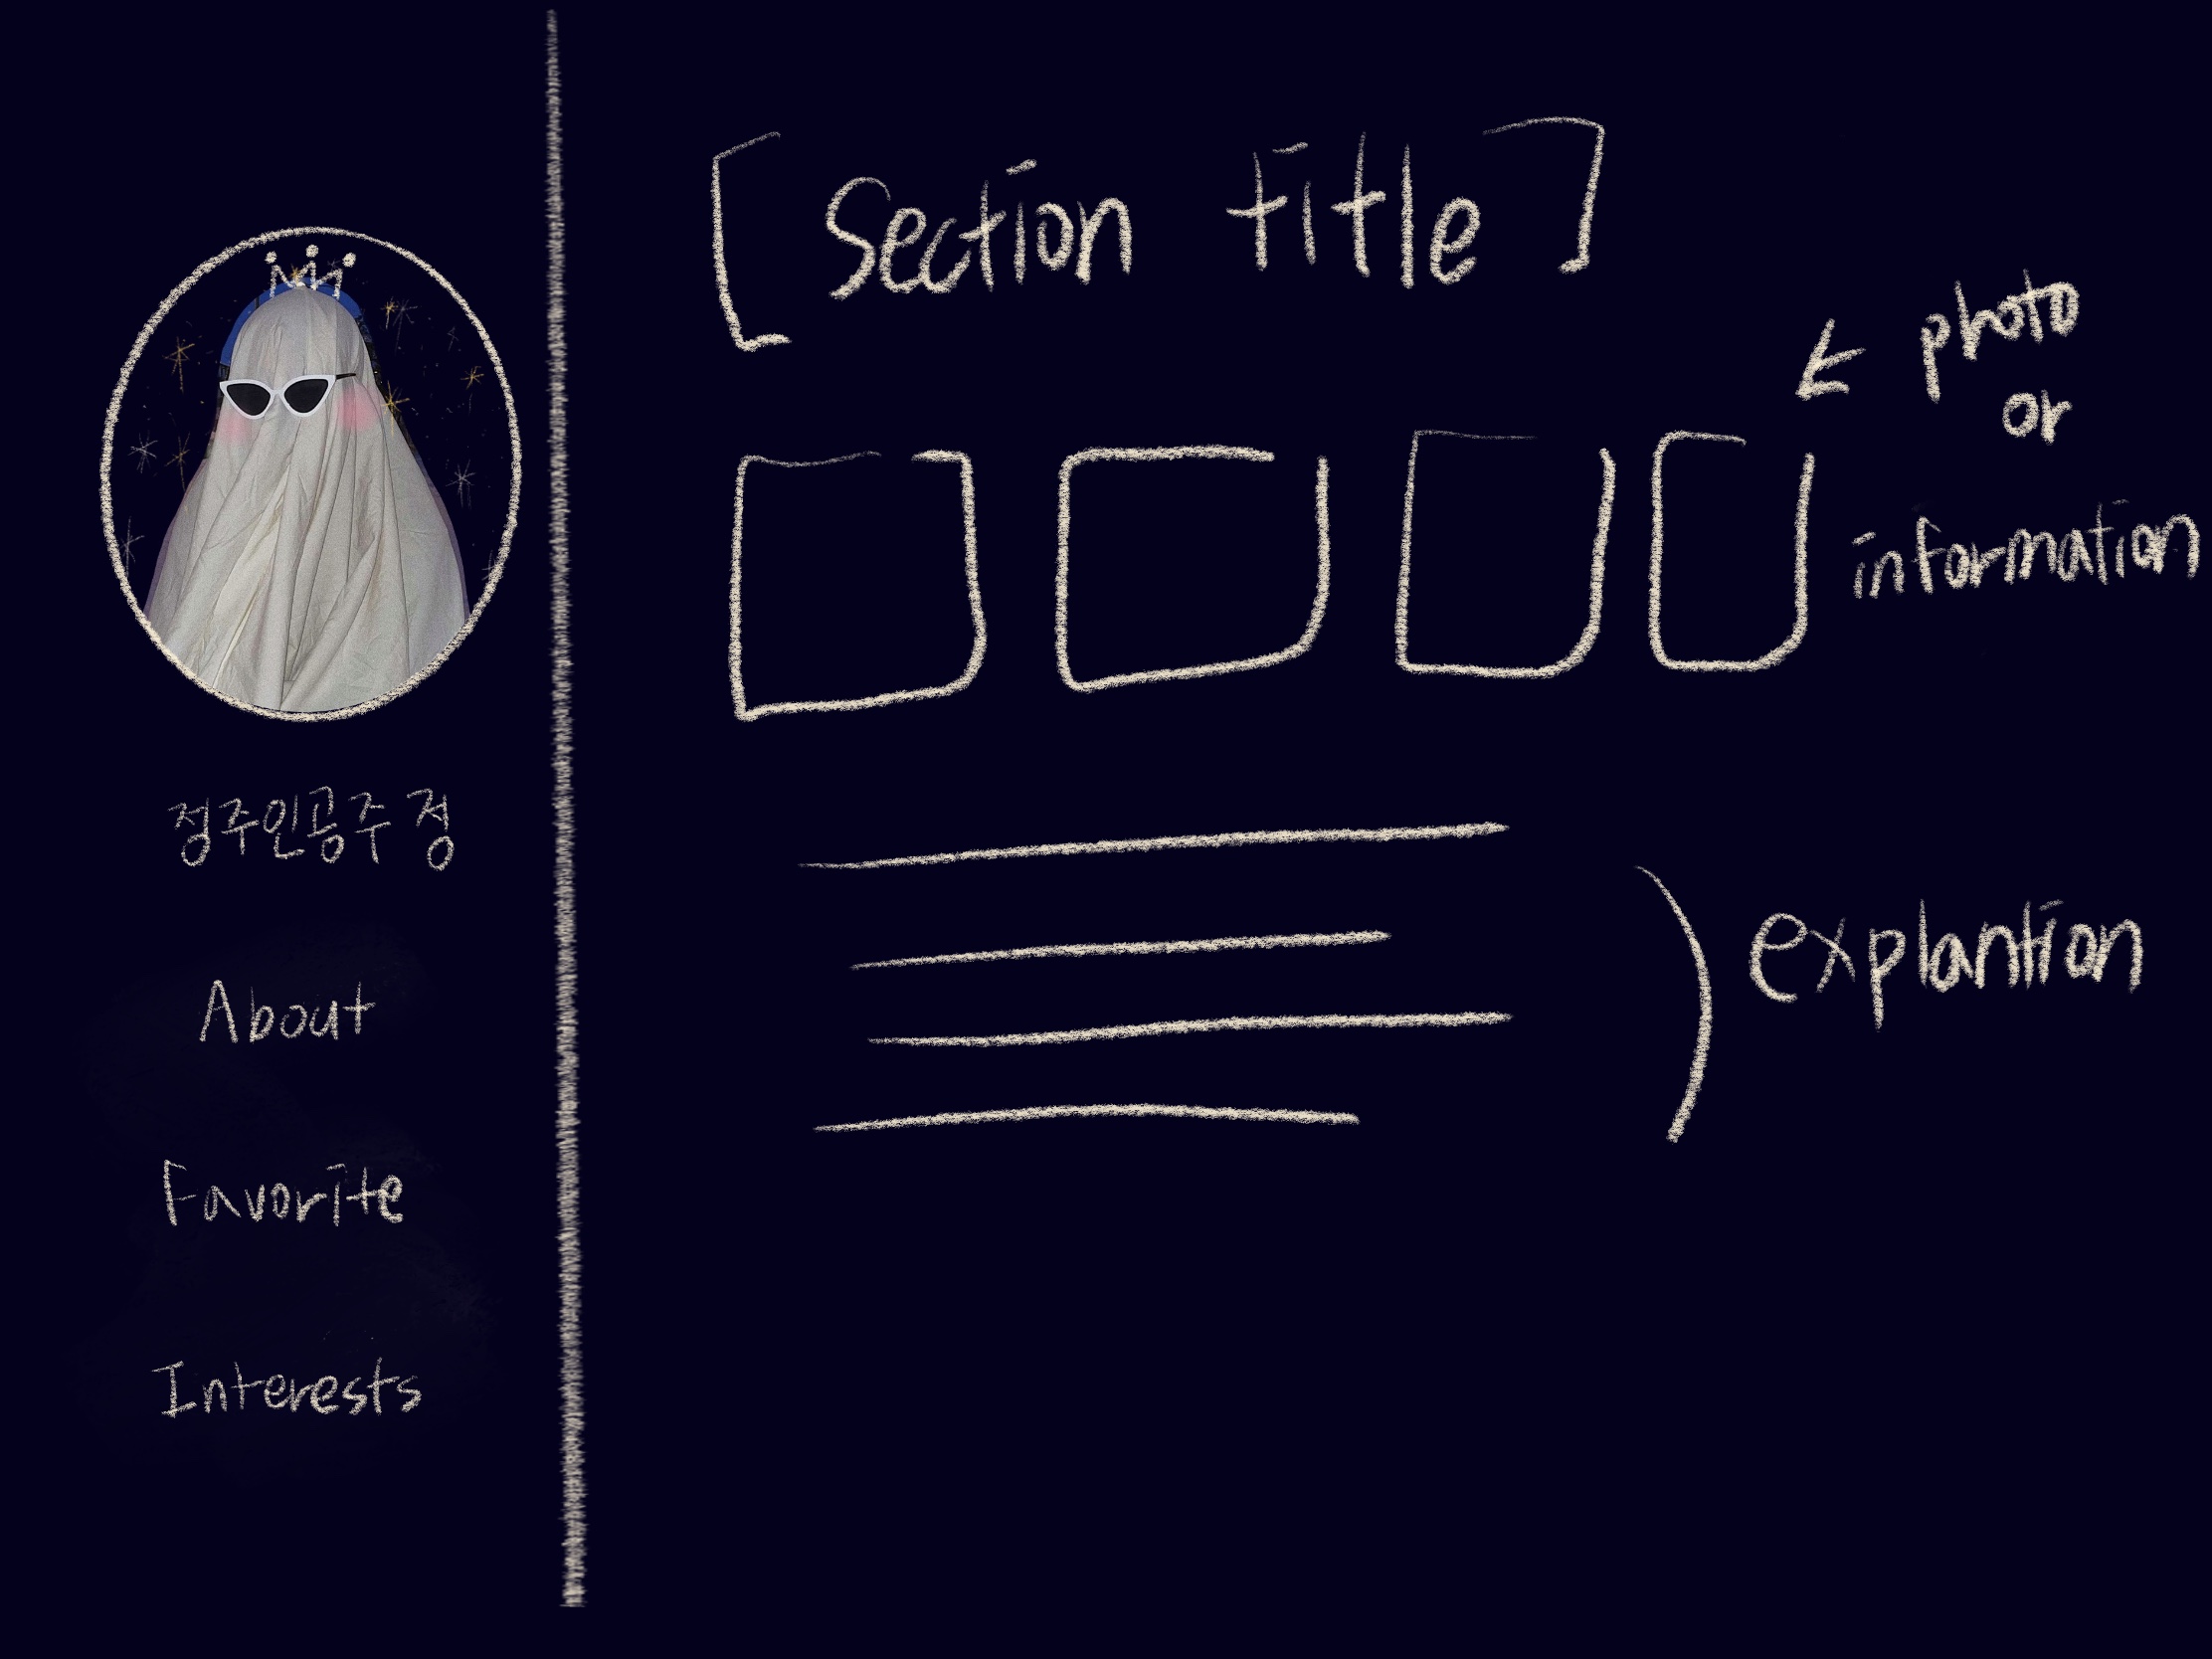 정주인공주 정
About
Favorite
Interests
[ Section title ]
photo
or
information
explantion